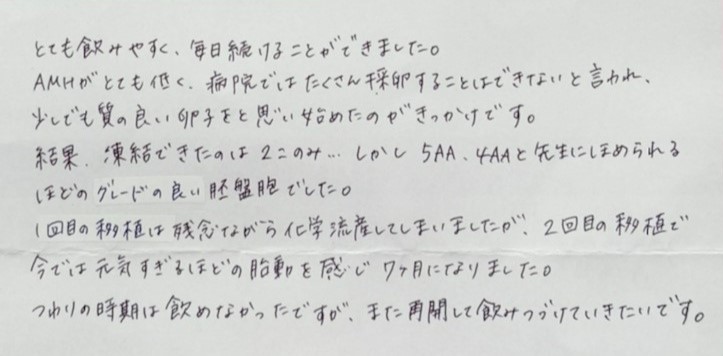 とても飲みやすく、毎日続けることができました。
AMHがとても低く、病院ではたくさん採卵することはできないと言われ、
少しでも質の良い卵子をと思い始めたのがきっかけです。
結果、凍結できたのは2このみ… しかし 5AA、4AAと先生にほめられる
ほどのグレードの良い胚盤胞でした。
1回目の移植は残念ながら化学流産してしまいましたが、2回目の移植で
今では元気すぎるほどの胎動を感じ 7ヶ月になりました。
つわりの時期は飲めなかったですが、また再開して飲みつづけていきたいです。